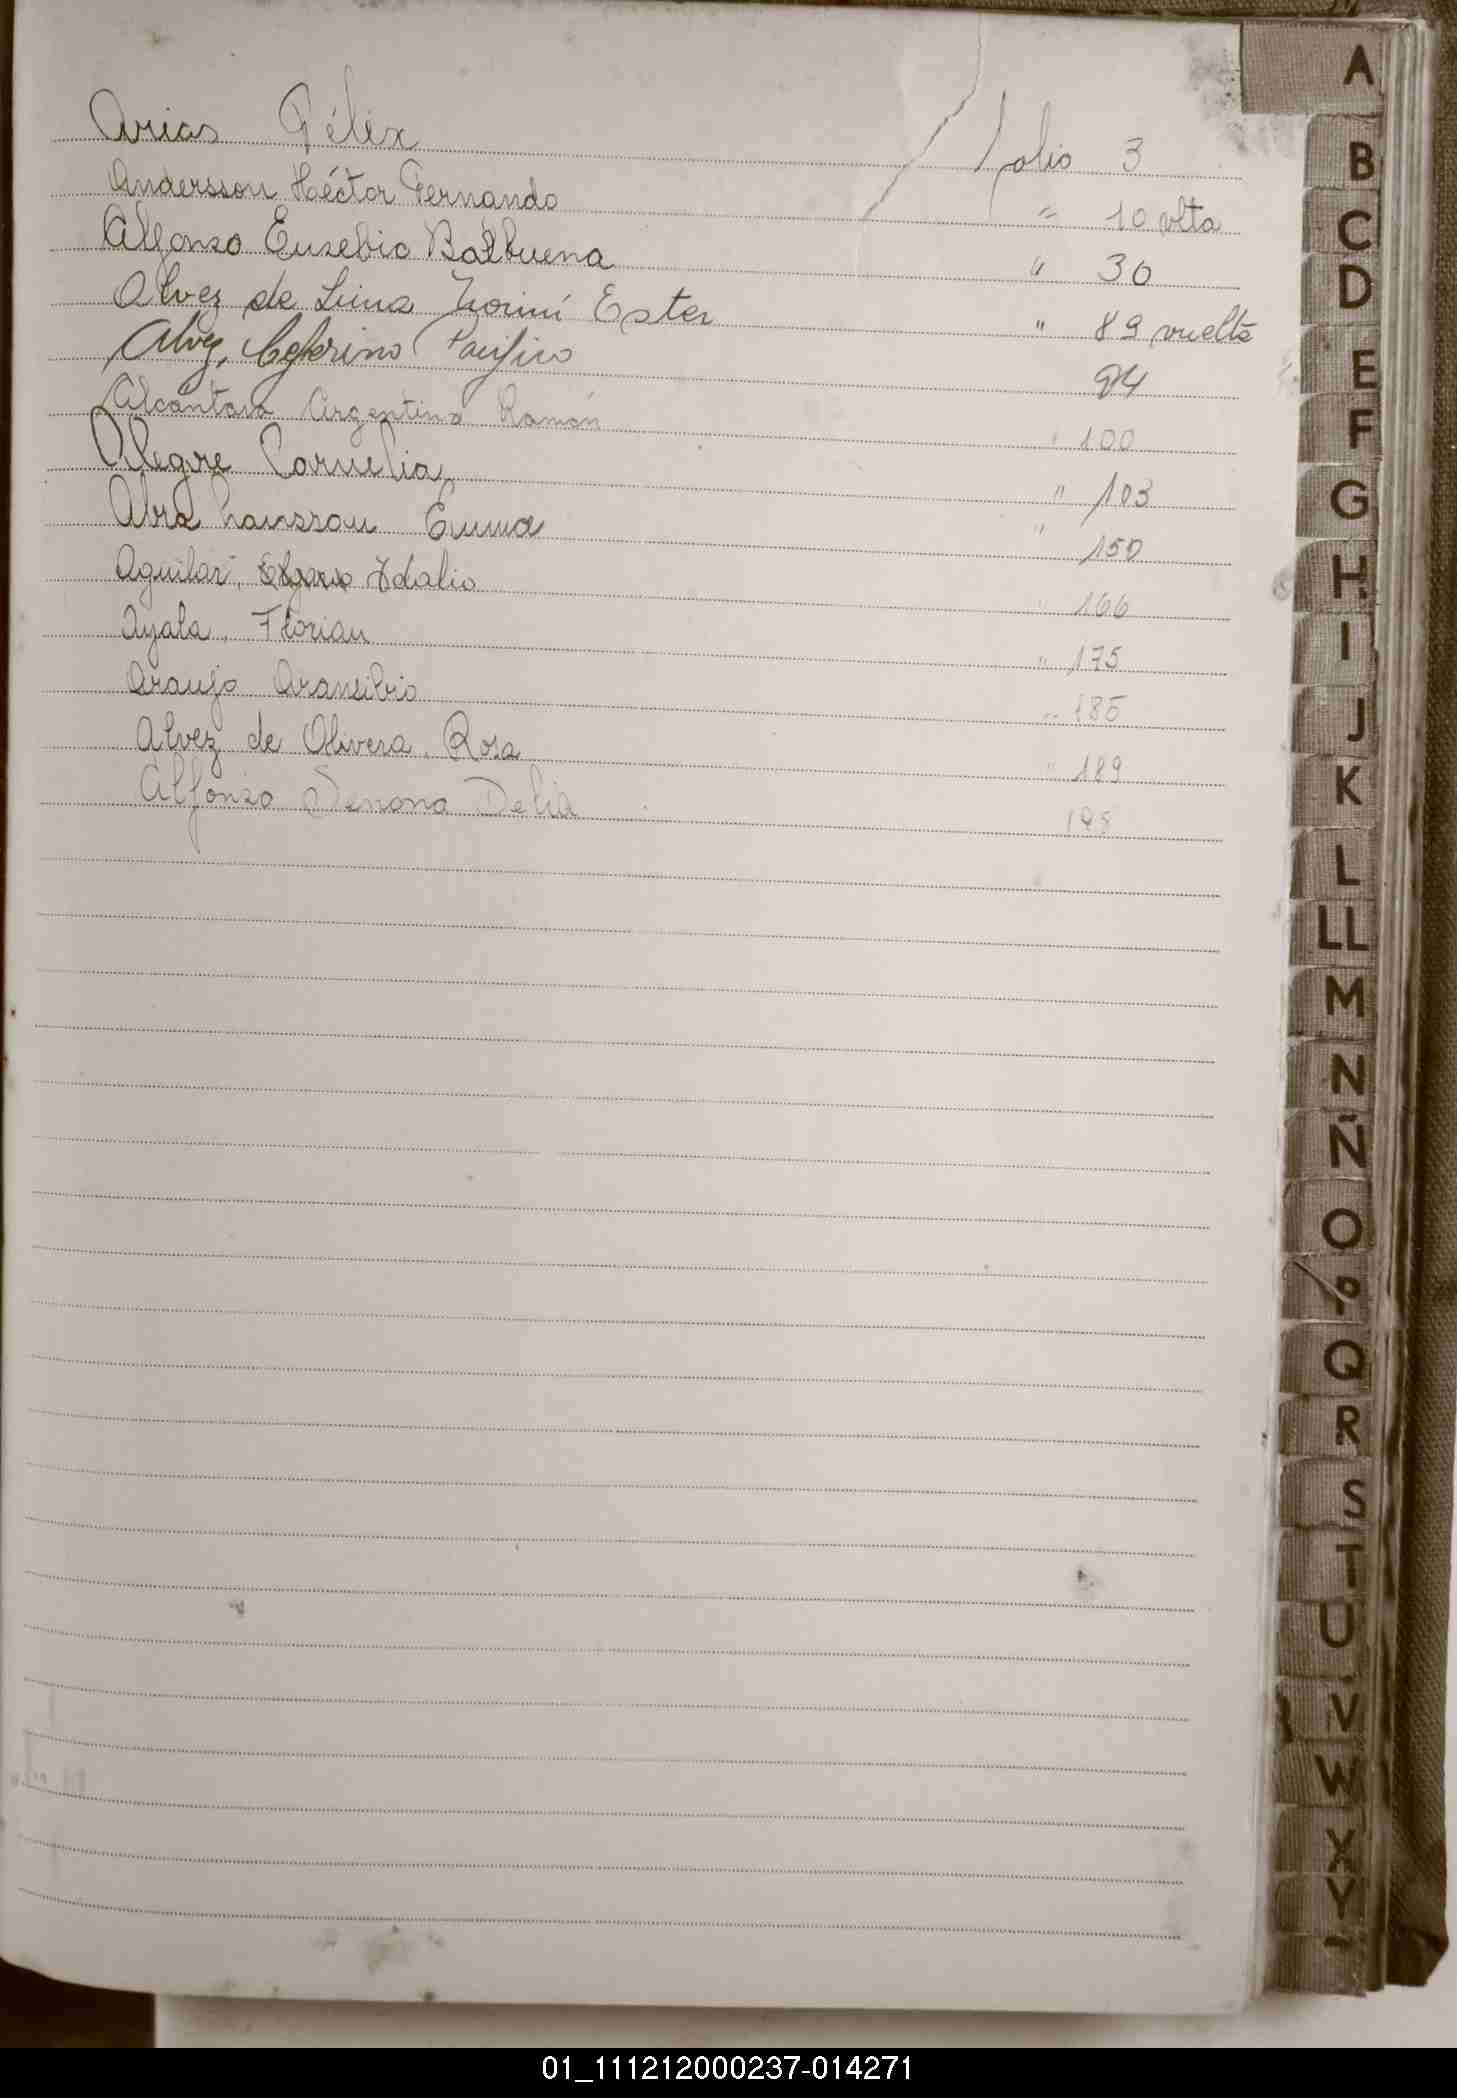 Arias Félix folio 3
Andersson Héctor Fernando " 10 vlta
Alfonso Eusebio Balbuena " 30
Alvez de Lima Ester " 89 vuelta
Alvez, Ceferino Pacífico 94
Alcántara Argentino Ramón " 100
Alegre Cornelia " 103
Abrahansson Emma " 150
Aguilar, Idalio " 166
Ayala, Florian " 175
Araujo Aransibio " 185
Alvez de Olivera, Rosa " 189
Alfonso Delia
A
B
C
D
E
F
G
H
I
J
K
L
LL
M
N
Ñ
O
P
Q
R
S
T
U
V
W
X
Y
01_111212000237-014271